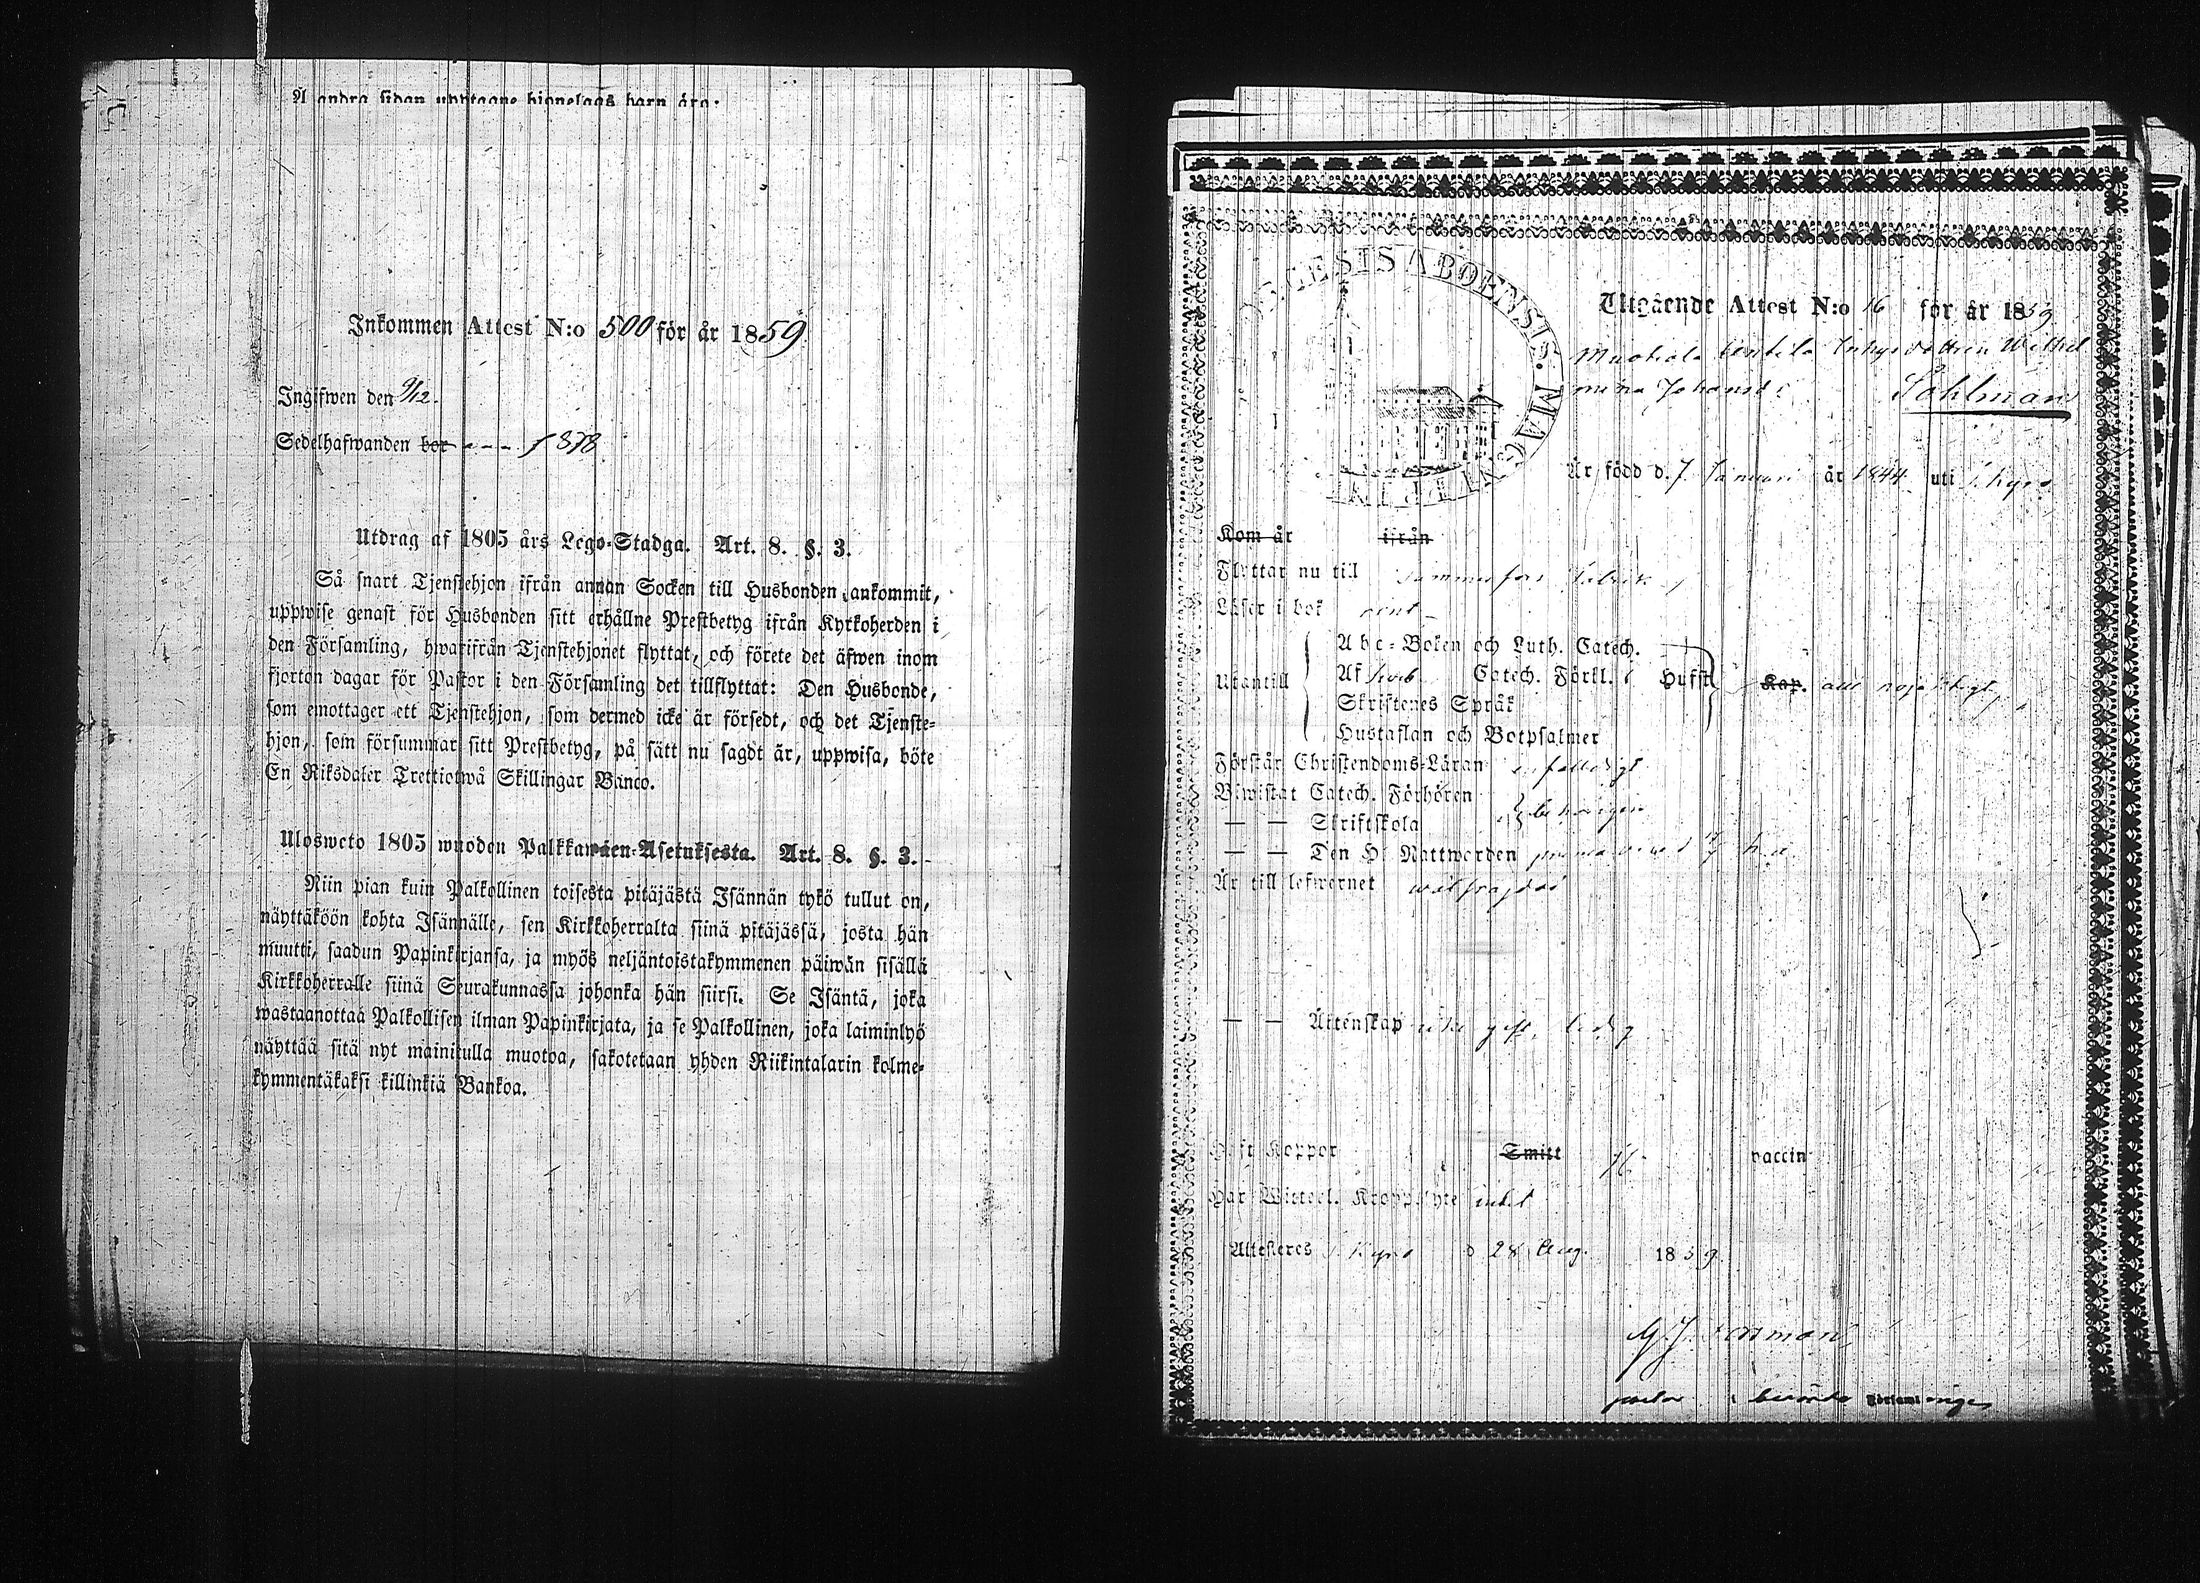 Å andra sidan upptagne hjonelags barn äro:
Inkommen Attest N:o 500 för år 1859
Ingifwen den 9/12.
Sedelhafwanden bor - - - f 878
Utdrag af 1805 års Lego-Stadga. Art. 8. §. 3.
Så snart Tjenstehjon ifrån annan Socken till Husbonden ankommit,
uppwise genast för Husbonden sitt erhållne Prestbetyg ifrån Kyrkoherden i
den Församling, hwarifrån Tjenstehjonet flyttat, och förete det äfwen inom
fjorton dagar för Pastor i den Församling det tillflyttat: Den Husbonde,
som emottager ett Tjenstehjon, som dermed icke är försedt, och det Tjenste-
hjon, som försummar sitt Prestbetyg, på sätt nu sagdt är, uppwisa, böte
En Riksdaler Trettiotwå Skillingar Banco.
Ulosweto 1805 wuoden Palkkawäen-Asetuksesta. Art. 8. §. 3.
Niin pian kuin Palkollinen toisesta pitäjästä Isännän tykö tullut on,
näyttäköön kohta Isännälle, sen Kirkkoherralta siinä pitäjässä, josta hän
muutti, saadun Papinkirjansa, ja myös neljäntoistakymmenen päiwän sisällä
Kirkkoherralle siinä Seurakunnassa johonka hän siirsi. Se Isäntä, joka
wastaanottaa Palkollisen ilman Papinkirjata, ja se Palkollinen, joka laiminlyö
näyttää sitä nyt mainitulla muotoa, sakotetaan yhden Riikintalarin kolme-
kymmentäkaksi killinkiä Bankoa.
DIOECESIS ABOENSIS. MAGNI PRINC
Utgående Attest N:o 16 för år 1859
Wilhel
mina Johansd:r Sohlman
Är född d. 7 Januari år 1844 uti Kyro
Kom år ifrån
Flyttar nu till Tammerfors fabrik
Läser i bok rent
Utantill
Abc-Boken och Luth. Catech.
Af Catech. Förkl. Husfl
Kap.
Skriftenes Språk
Hustaflan och Botpsalmer
Förstår Christendoms-Läran
Biwistat Catech. Förhören
— — Skriftskola behörigen
— — Den H. Nattwarden
Är till lefwernet wälfrejdad
— — Äktenskap icke gift. ledig
Haft Koppor Smitt vaccin
Har Witterl. Kroppslyte intet
Attesteres Kyro d 28 Aug. 1859
pastor i berörde Församlinge